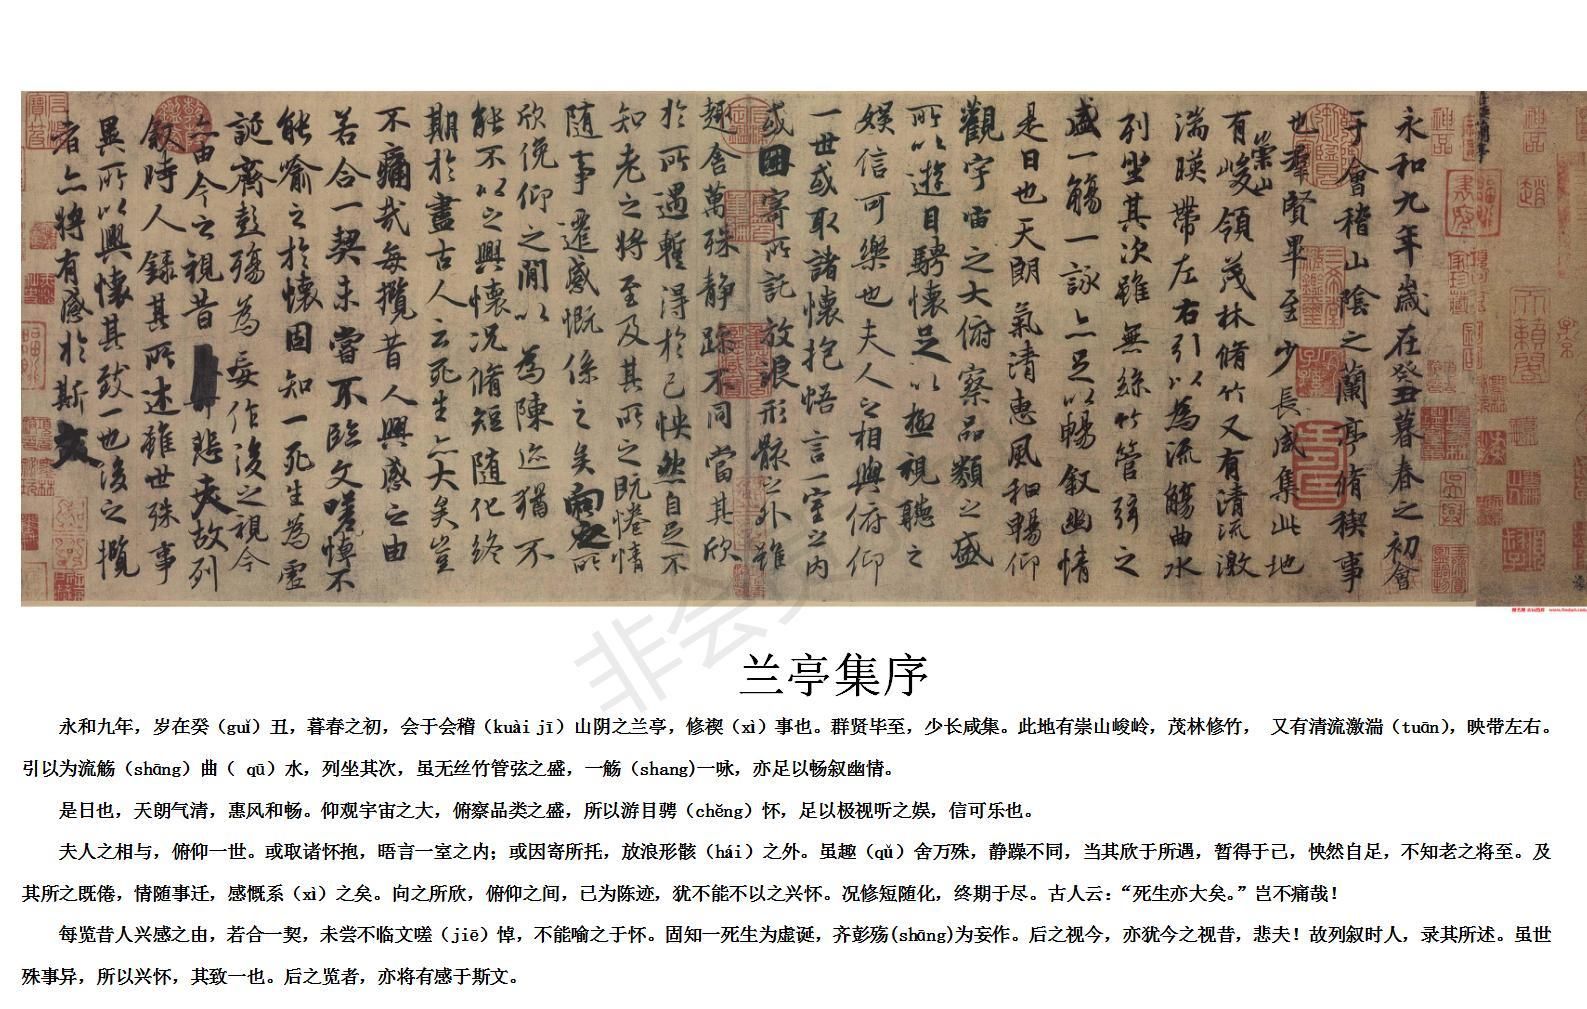 永和九年歲在癸丑暮春之初會
于會稽山陰之蘭亭脩禊事
也羣賢畢至少長咸集此地
有崇山峻領茂林脩竹又有清流激
湍暎帶左右引以為流觴曲水
列坐其次雖無絲竹管弦之
盛一觴一詠亦足以暢叙幽情
是日也天朗氣清惠風和暢仰
觀宇宙之大俯察品類之盛
所以遊目騁懷足以極視聽之
娛信可樂也夫人之相與俯仰
一世或取諸懷抱悟言一室之內
或因寄所託放浪形骸之外雖
趣舍萬殊静躁不同當其欣
於所遇暫得於己怏然自足不
知老之將至及其所之既惓情
隨事遷感慨係之矣向之所
欣俛仰之閒以為陳迹猶不
能不以之興懷況脩短隨化終
期於盡古人云死生亦大矣豈
不痛哉每攬昔人興感之由
若合一契未嘗不臨文嗟悼不
能喻之於懷固知一死生為虛
誕齊彭殤為妄作後之視今
亦由今之視昔悲夫故列
叙時人錄其所述雖世殊事
異所以興懷其致一也後之攬
者亦將有感於斯文
兰亭集序
永和九年，岁在癸（guǐ）丑，暮春之初，会于会稽（kuài jī）山阴之兰亭，修禊（xì）事也。群贤毕至，少长咸集。此地有崇山峻岭，茂林修竹， 又有清流激湍（tuān），映带左右。
引以为流觞（shāng）曲（ qū）水，列坐其次，虽无丝竹管弦之盛，一觞（shang)一咏，亦足以畅叙幽情。
是日也，天朗气清，惠风和畅。仰观宇宙之大，俯察品类之盛，所以游目骋（chěng）怀，足以极视听之娱，信可乐也。
夫人之相与，俯仰一世。或取诸怀抱，晤言一室之内；或因寄所托，放浪形骸（hái）之外。虽趣（qǔ）舍万殊，静躁不同，当其欣于所遇，暂得于己，怏然自足，不知老之将至。及
其所之既倦，情随事迁，感慨系（xì）之矣。向之所欣，俯仰之间，已为陈迹，犹不能不以之兴怀。况修短随化，终期于尽。古人云：“死生亦大矣。”岂不痛哉！
每览昔人兴感之由，若合一契，未尝不临文嗟（jiē）悼，不能喻之于怀。固知一死生为虚诞，齐彭殇(shāng)为妄作。后之视今，亦犹今之视昔，悲夫！故列叙时人，录其所述。虽世
殊事异，所以兴怀，其致一也。后之览者，亦将有感于斯文。
非会员